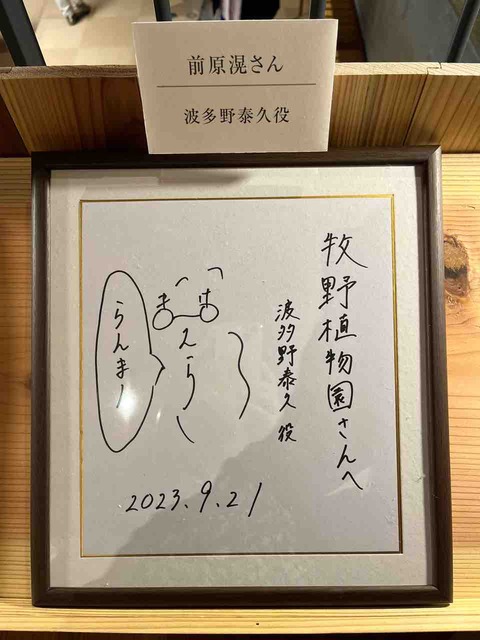 前原滉さん
波多野泰久役
牧野植物園さんへ
波多野泰久 役
ま は
えら
らんまー
2023.9.21